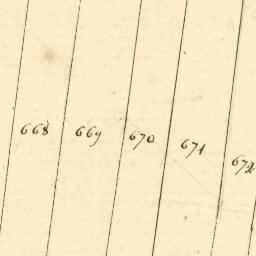 668 669 670 671 672